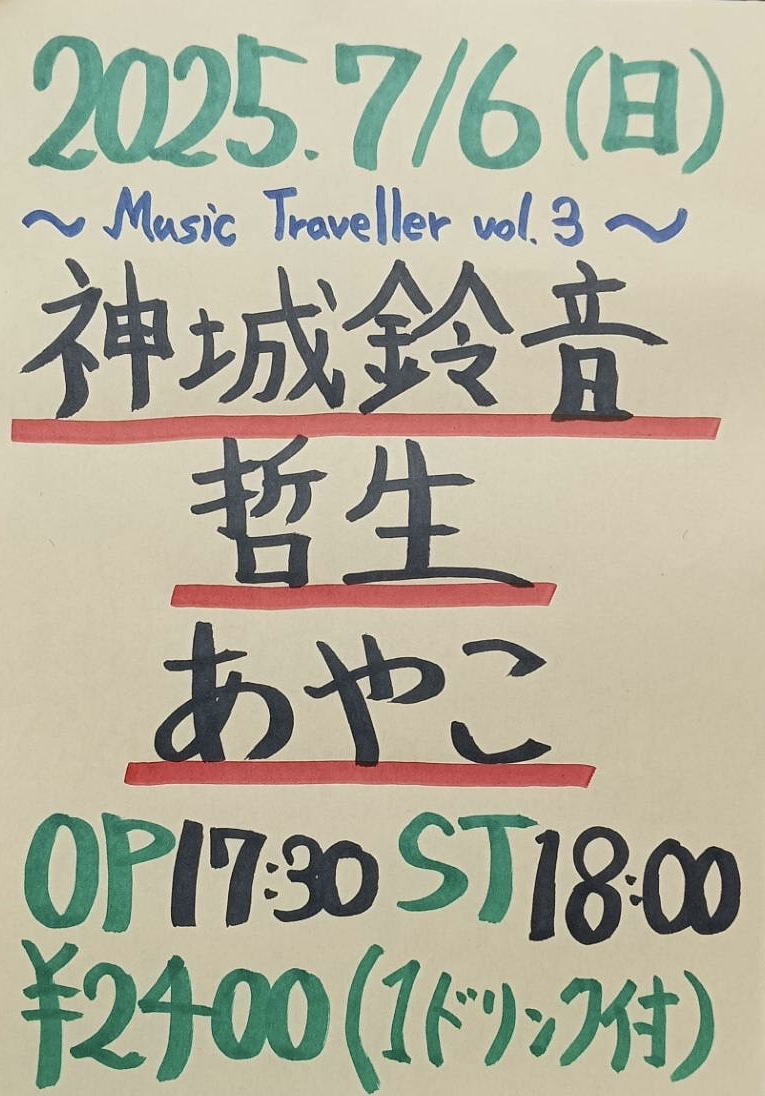 2025.7/6(日)
~Music Traveller vol.3~
神城鈴音
哲生
あやこ
OP17:30 ST18:00
¥2400(1ドリンク付)